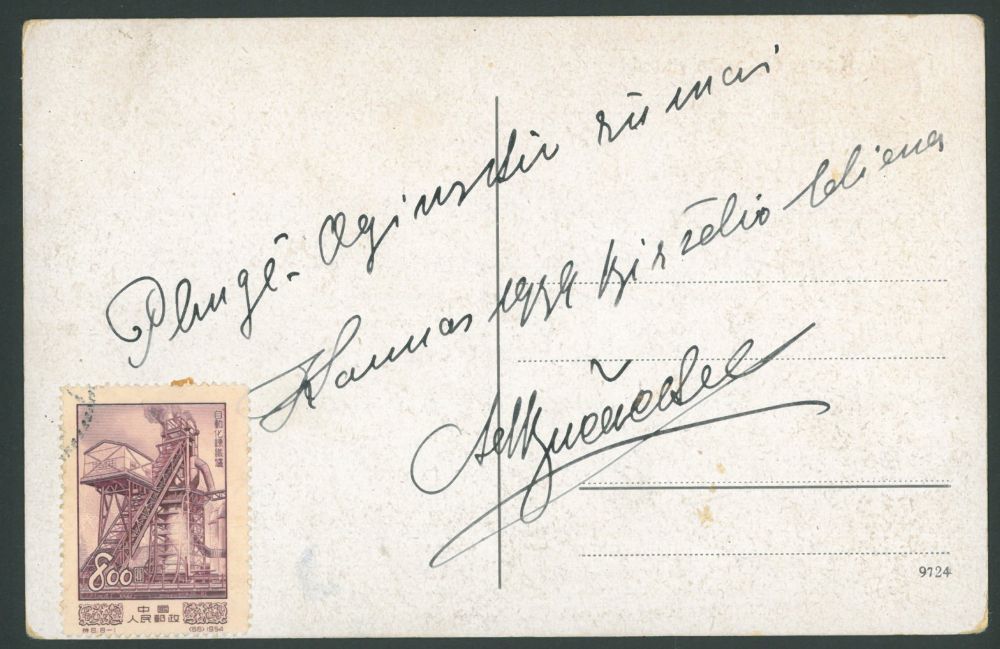 Plungė. Oginskių rūmai
Kaunas 1974 birželio diena
9724
自動化煉鐵爐
800圓
中國
人民郵政
特8.8-1 (56) 1954